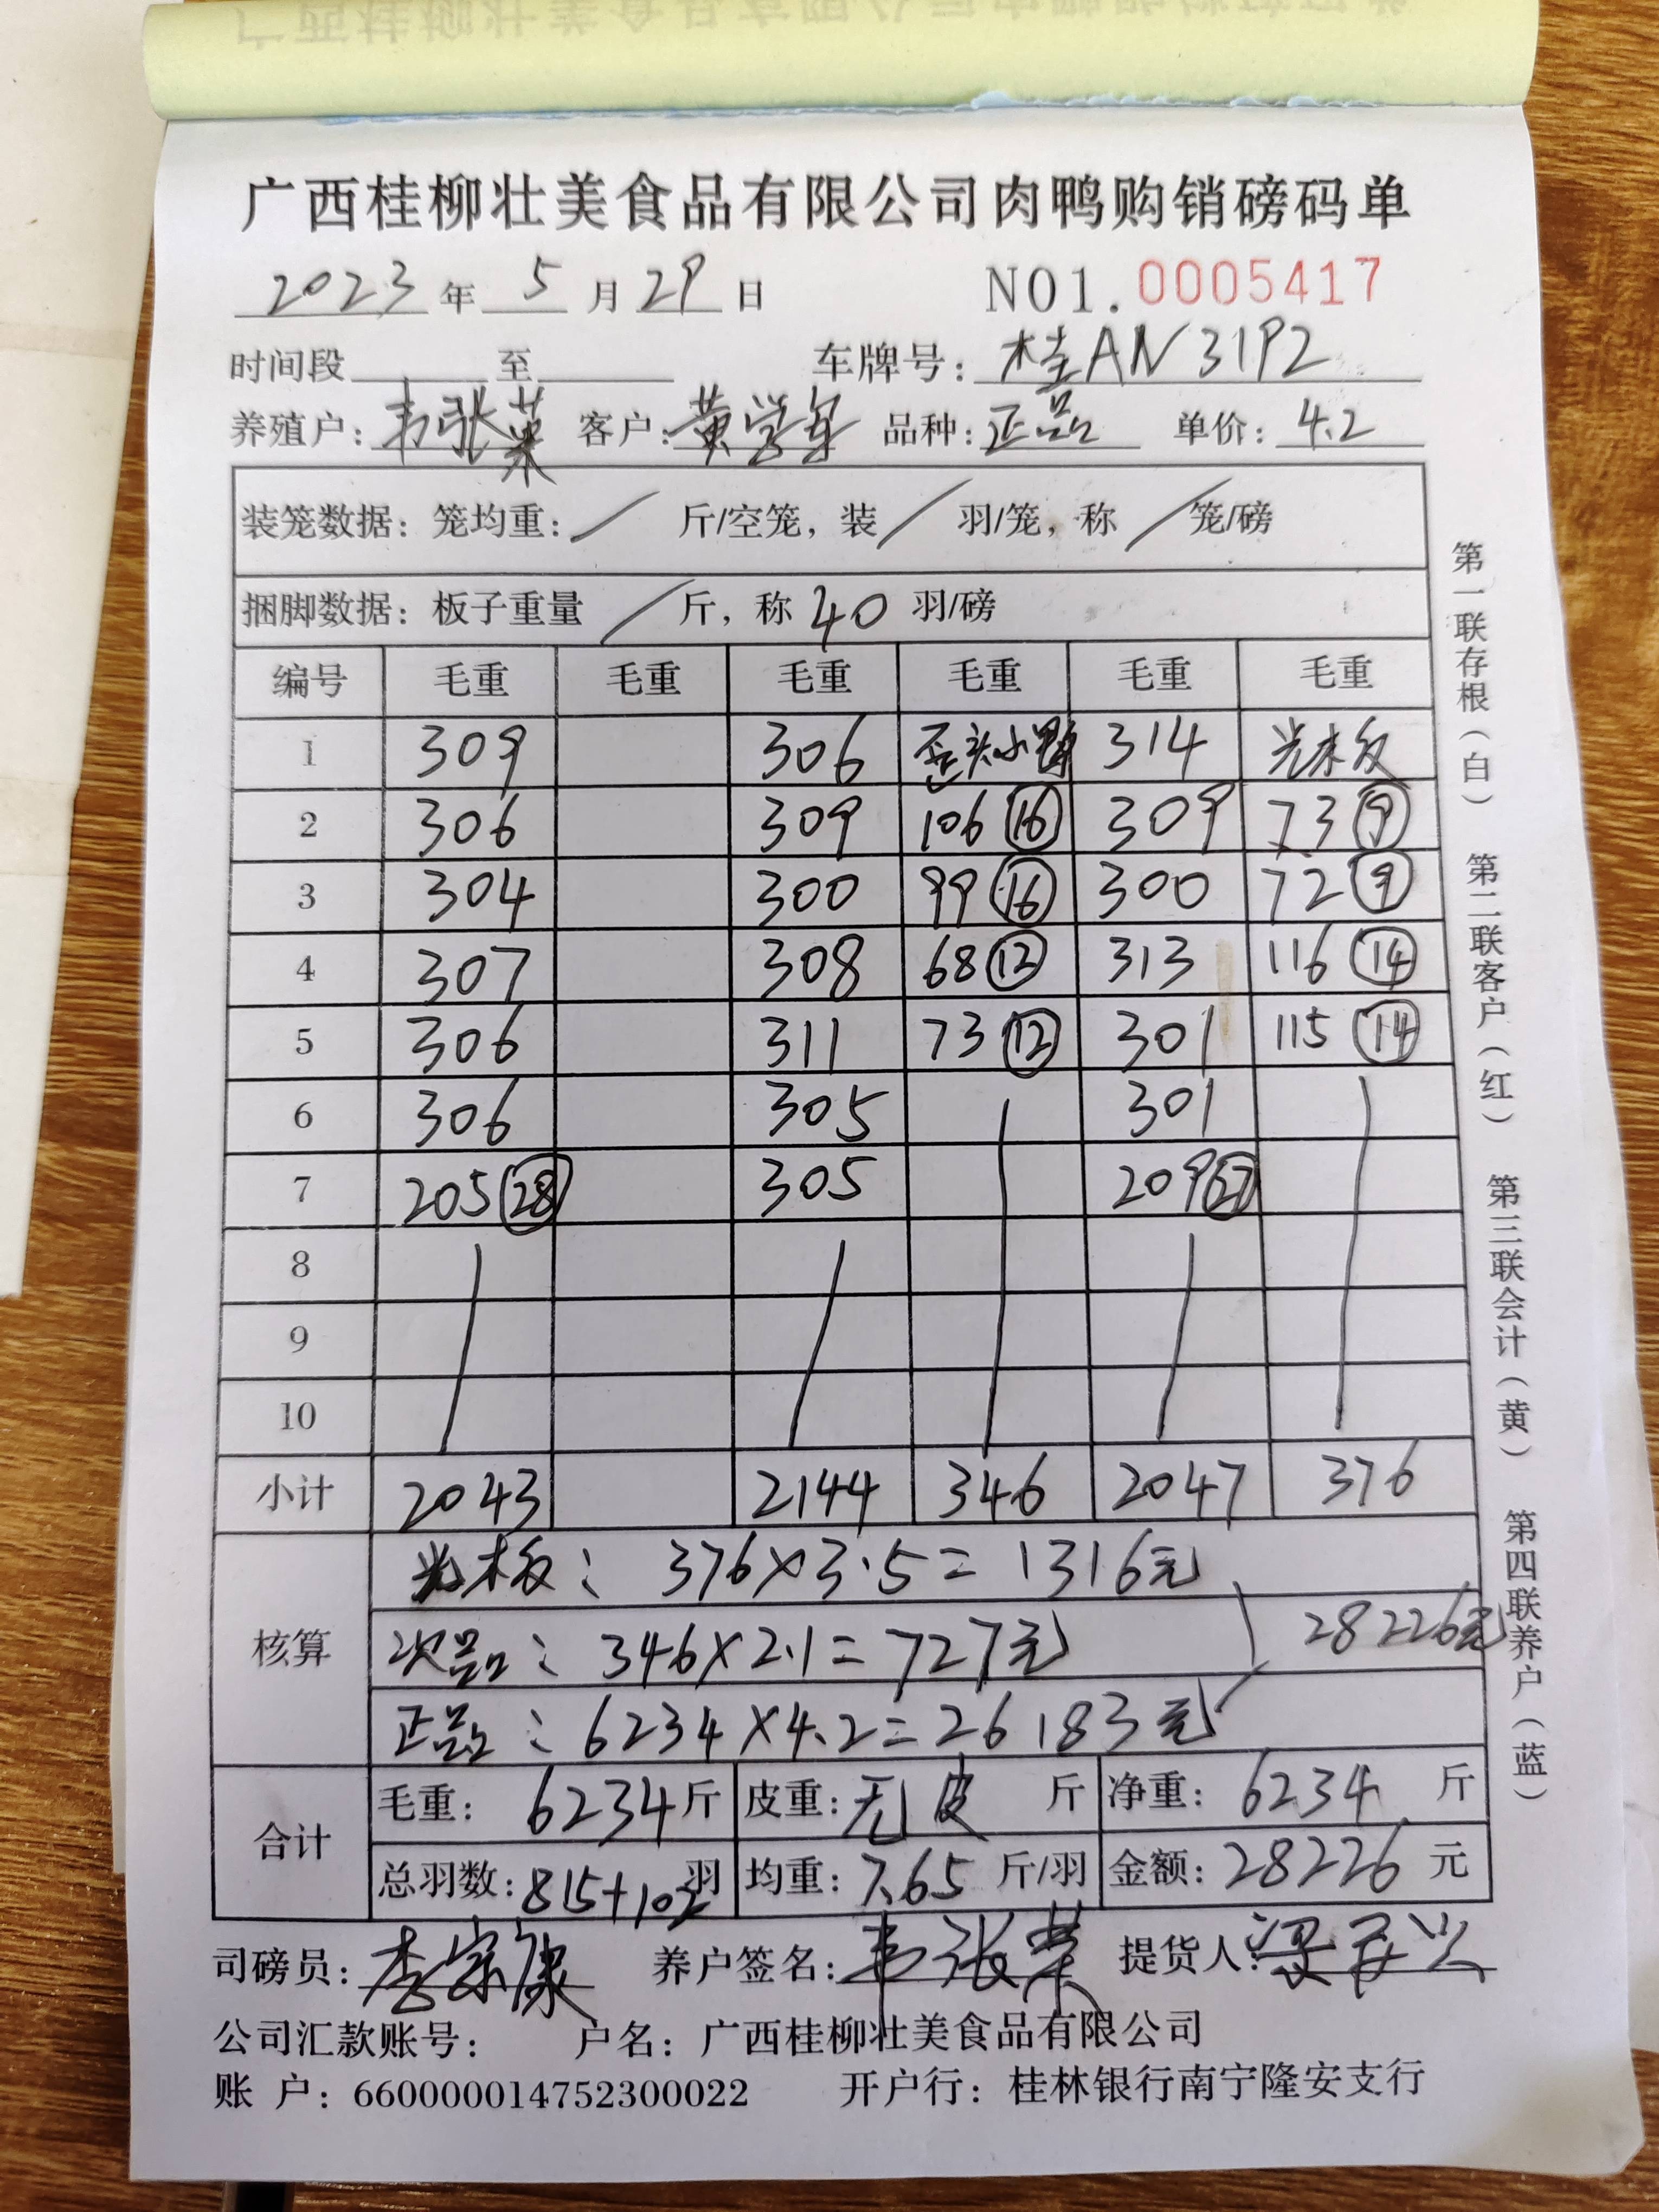 广西桂柳壮美食品有限公司肉鸭购销磅码单
2023年 5月29日 NO1. 0005417
时间段 至 车牌号: 桂AN3192
养殖户: 韦张荣 客户: 黄学军 品种: 正品 单价: 4.2
装笼数据: 笼均重: / 斤/空笼, 装 / 羽/笼, 称 / 笼/磅
捆脚数据: 板子重量 / 斤, 称 40 羽/磅
编号 毛重 毛重 毛重 毛重 毛重 毛重
1 309 306 歪头小 314 光木板
2 306 309 106 16 309 73 9
3 304 300 99 16 300 72 9
4 307 308 68 12 313 116 14
5 306 311 73 12 301 115 14
6 306 305 301
7 205 28 305 209 27
8
9
10
小计 2043 2144 346 2047 376
核算
光木板: 376×3.5=1316元
次品: 346×2.1=727元 28226元
正品: 6234×4.2=26183元
合计
毛重: 6234斤 皮重: 无皮 斤 净重: 6234 斤
总羽数: 815+102羽 均重: 7.65 斤/羽 金额: 28226 元
司磅员: 李宗康 养户签名: 韦张荣 提货人:
公司汇款账号: 户名: 广西桂柳壮美食品有限公司
账 户: 660000014752300022 开户行: 桂林银行南宁隆安支行
第一联存根(白) 第二联客户(红) 第三联会计(黄) 第四联养户(蓝)